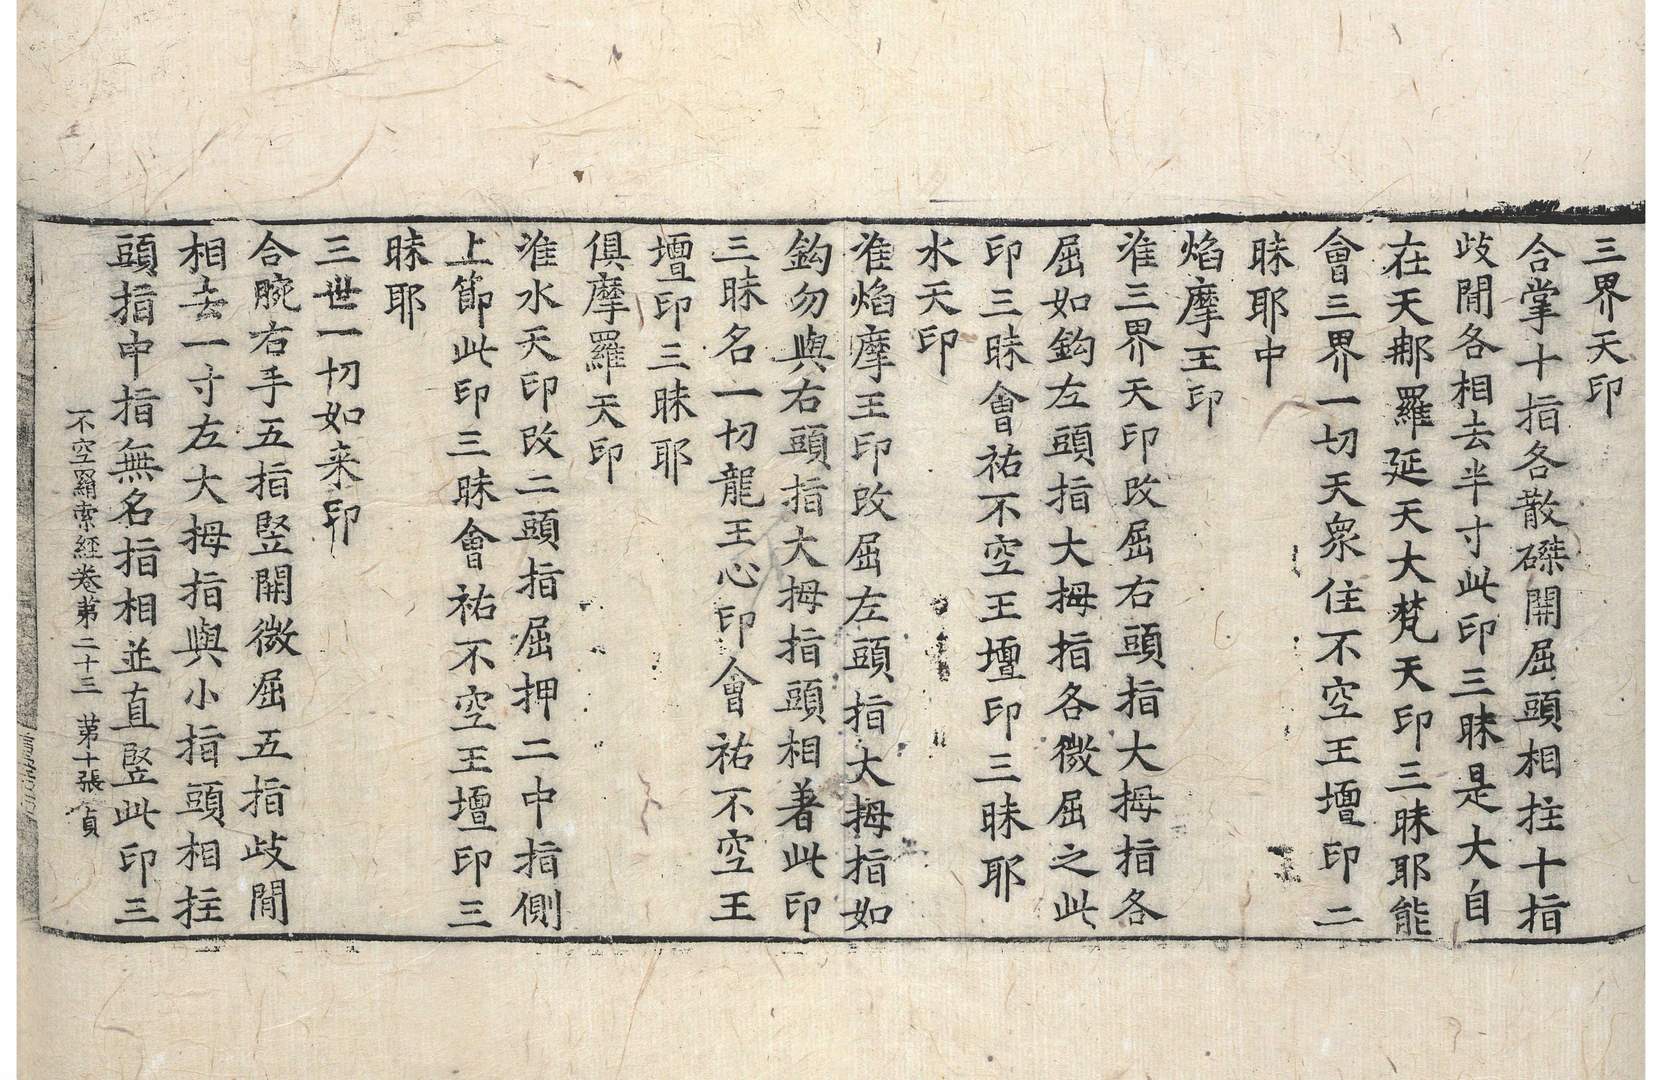 三界天印
合掌十指各散磔開屈頭相拄十指
歧閒各相去半寸此印三昧是大自
在天那羅延天大梵天印三昧耶能
會三界一切天衆住不空王壇印二
昧耶中
焰摩王印
准三界天印改屈右頭指大拇指各
屈如鈎左頭指大拇指各微屈之此
印三昧會祐不空王壇印三昧耶
水天印
准焰摩王印改屈左頭指大拇指如
鈎勿與右頭指大拇指頭相著此印
三昧名一切龍王心印會祐不空王
壇印三昧耶
俱摩羅天印
准水天印改二頭指屈押二中指側
上節此印三昧會祐不空王壇印三
昧耶
三世一切如来印
合腕右手五指竪開微屈五指歧閒
相去一寸左大拇指與小指頭相拄
頭指中指無名指相並直竪此印三
不空羂索經卷第二十三 第十張 貞